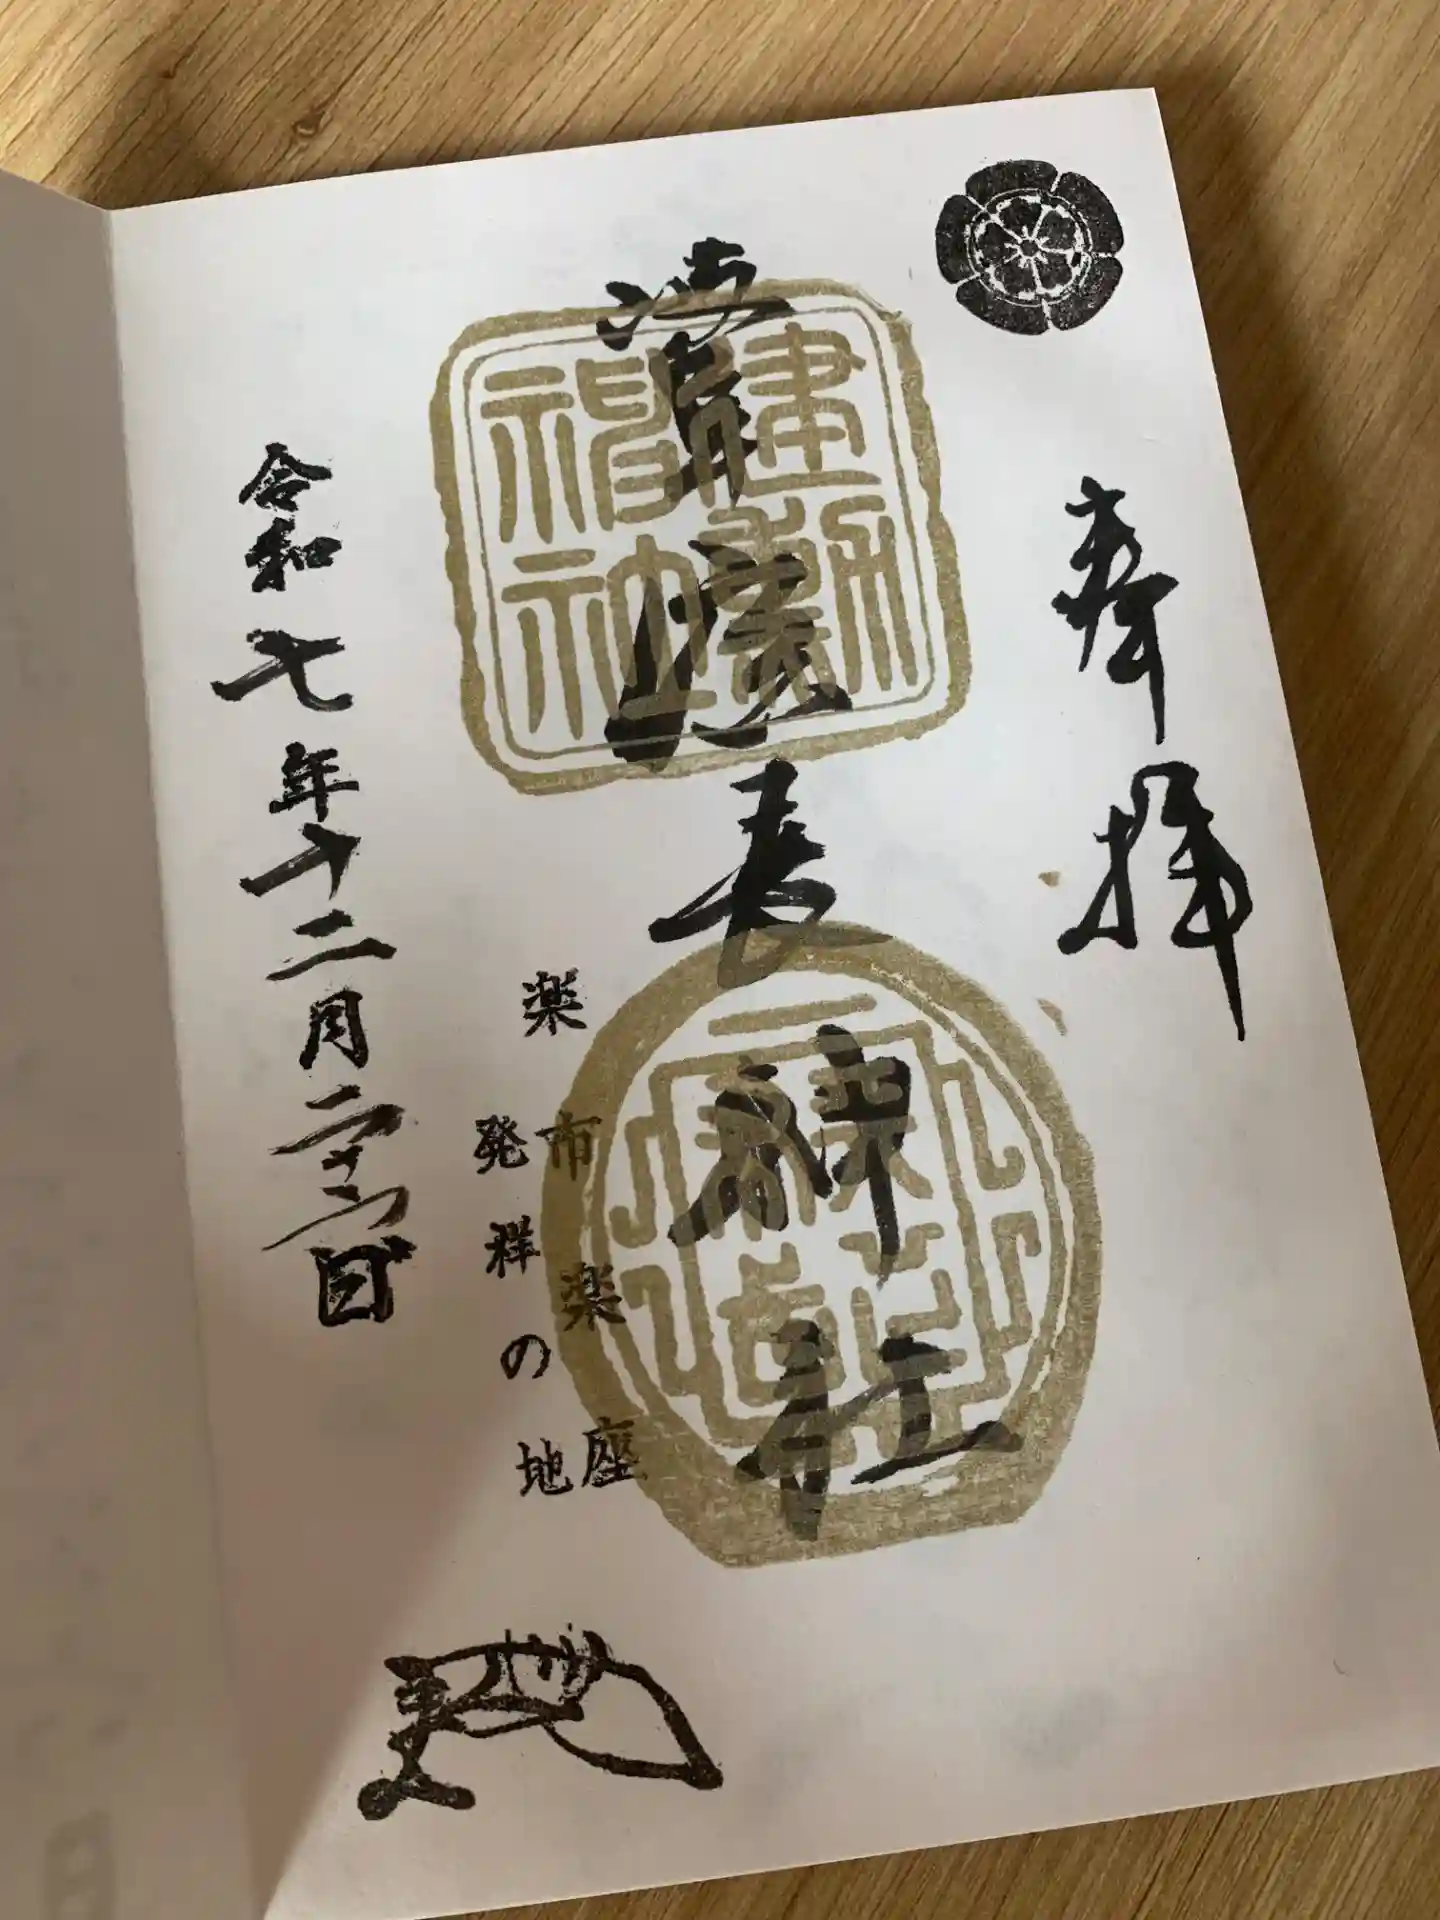 奉拝
岐阜信長神社
建勲
神社
楽市楽座
発祥の地
令和七年十二月二十二日